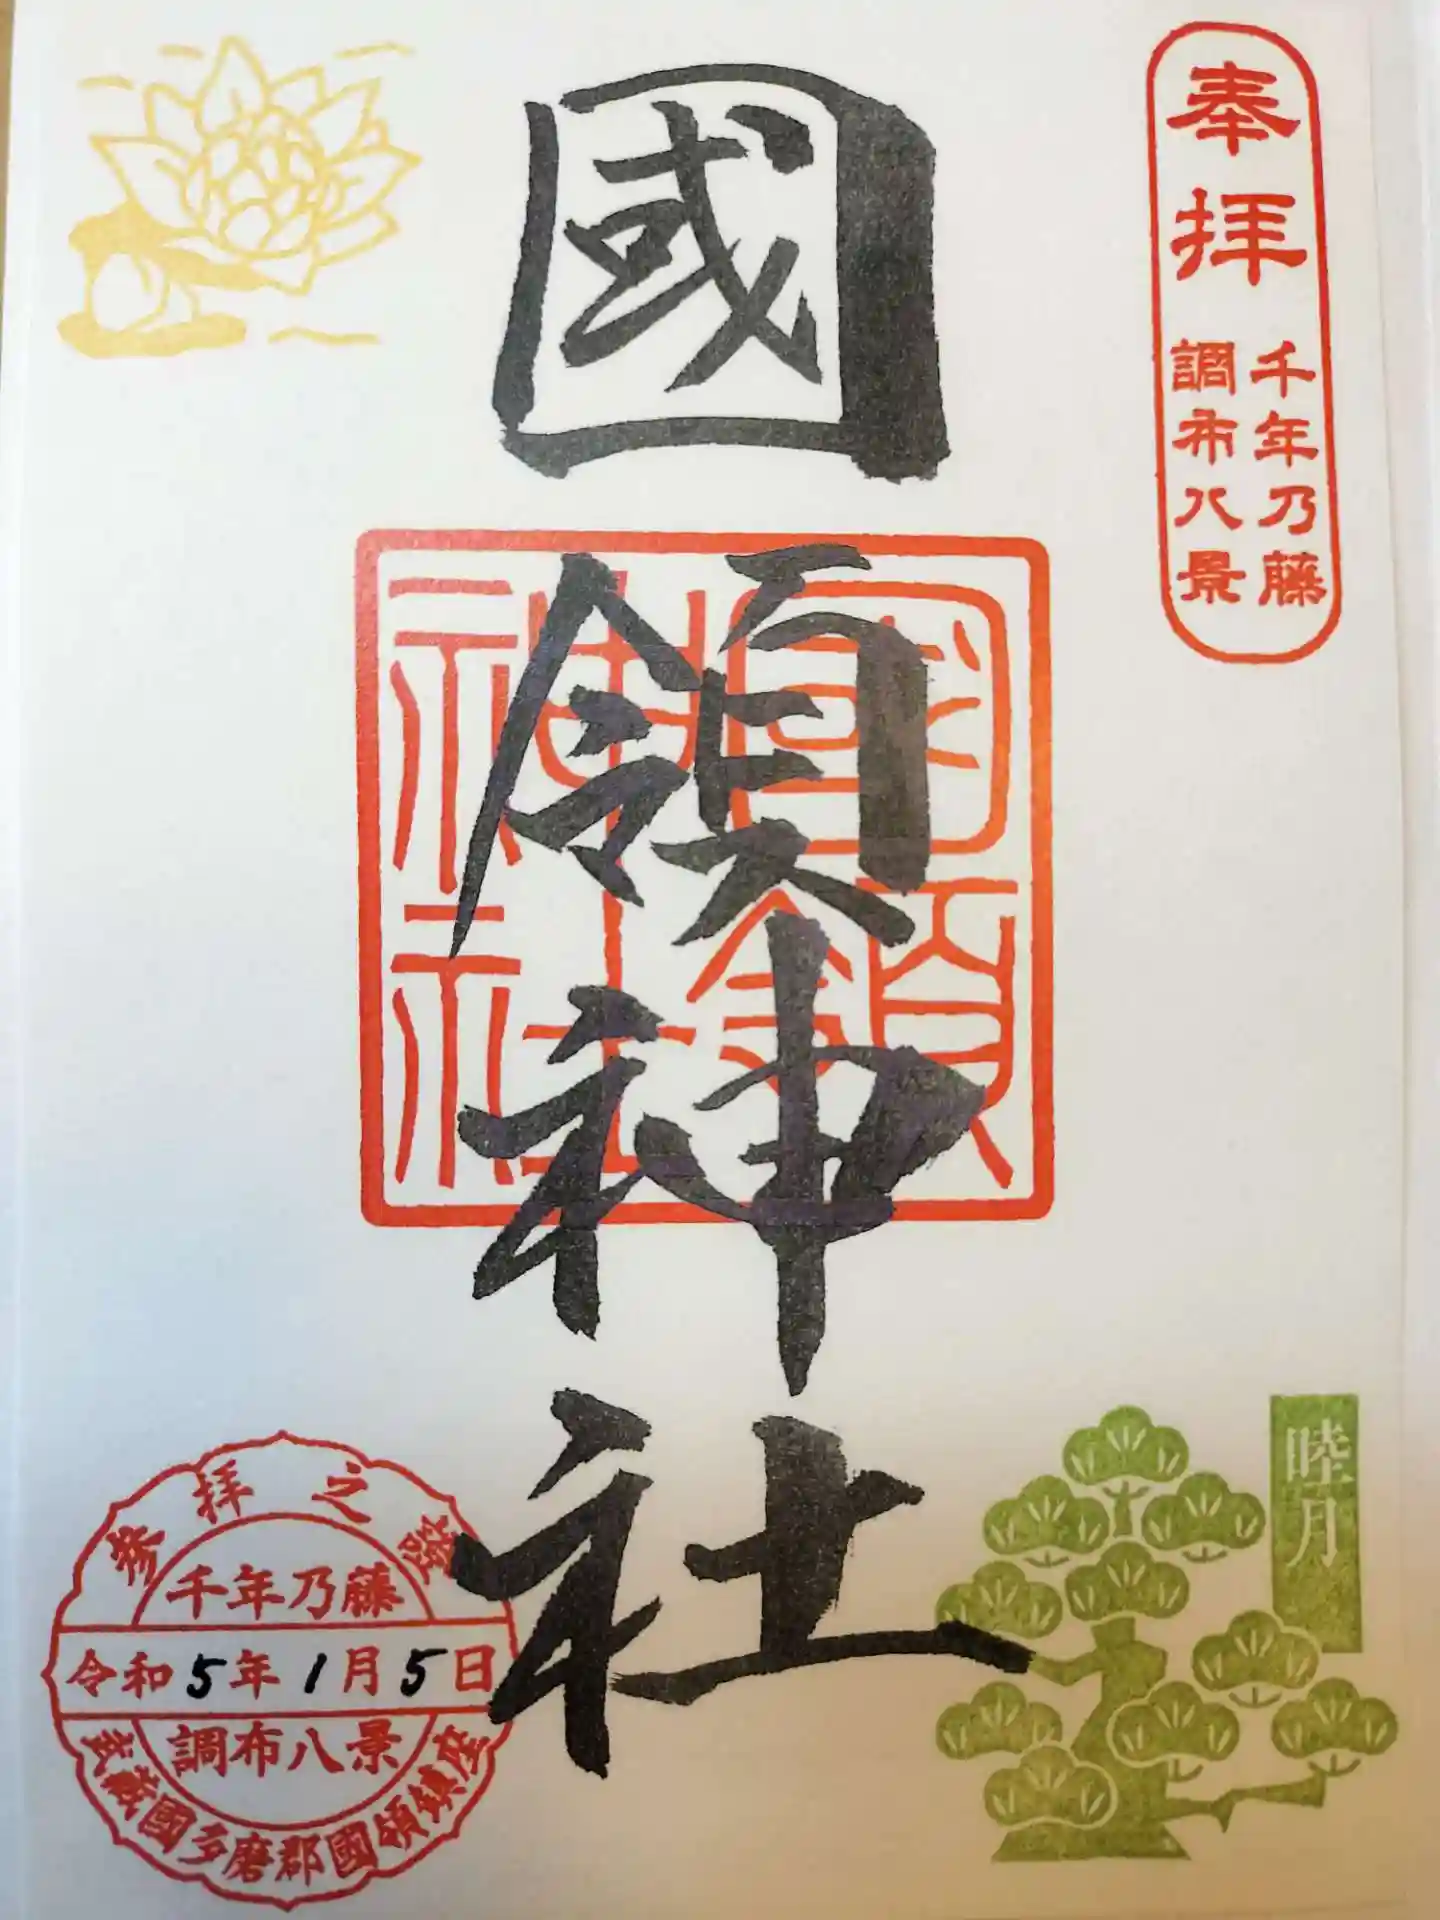 奉拝
千年乃藤
調布八景
國領神社
國領
神社
睦月
参拝之證
千年乃藤
令和5年1月5日
調布八景
武蔵國多磨郡國領鎮座